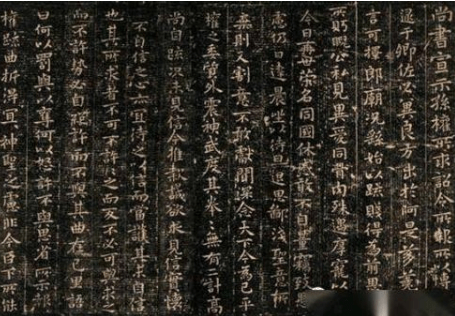 尚書宣示孫權所求詔令所報所以博
逮于卿佐必冀良方出於阿是芻蕘
言可擇郎廟況繇始以疏賤得為前恩
所盱睨公私見異愛同骨肉殊遇厚寵以
今日再世榮名同國休慼敢不自量竊致
慮仍日達晨坐以待旦退思鄙淺聖意所
棄則又割意不敢獻聞深念天下今為已平
權之委質外震神武度其拳拳無有二計高
尚自疏況未見信今推款誠欲求見信實懷
不自信之心亦宜待之以信而當護其未自信
也其所求者不可不許許之而反不必可與求之
而不許勢必自絕許而不與其曲在己里語
曰何以罰與以奪何以怒許不與思省所示報
權疏曲折得宜宜神聖之慮非今臣下所能